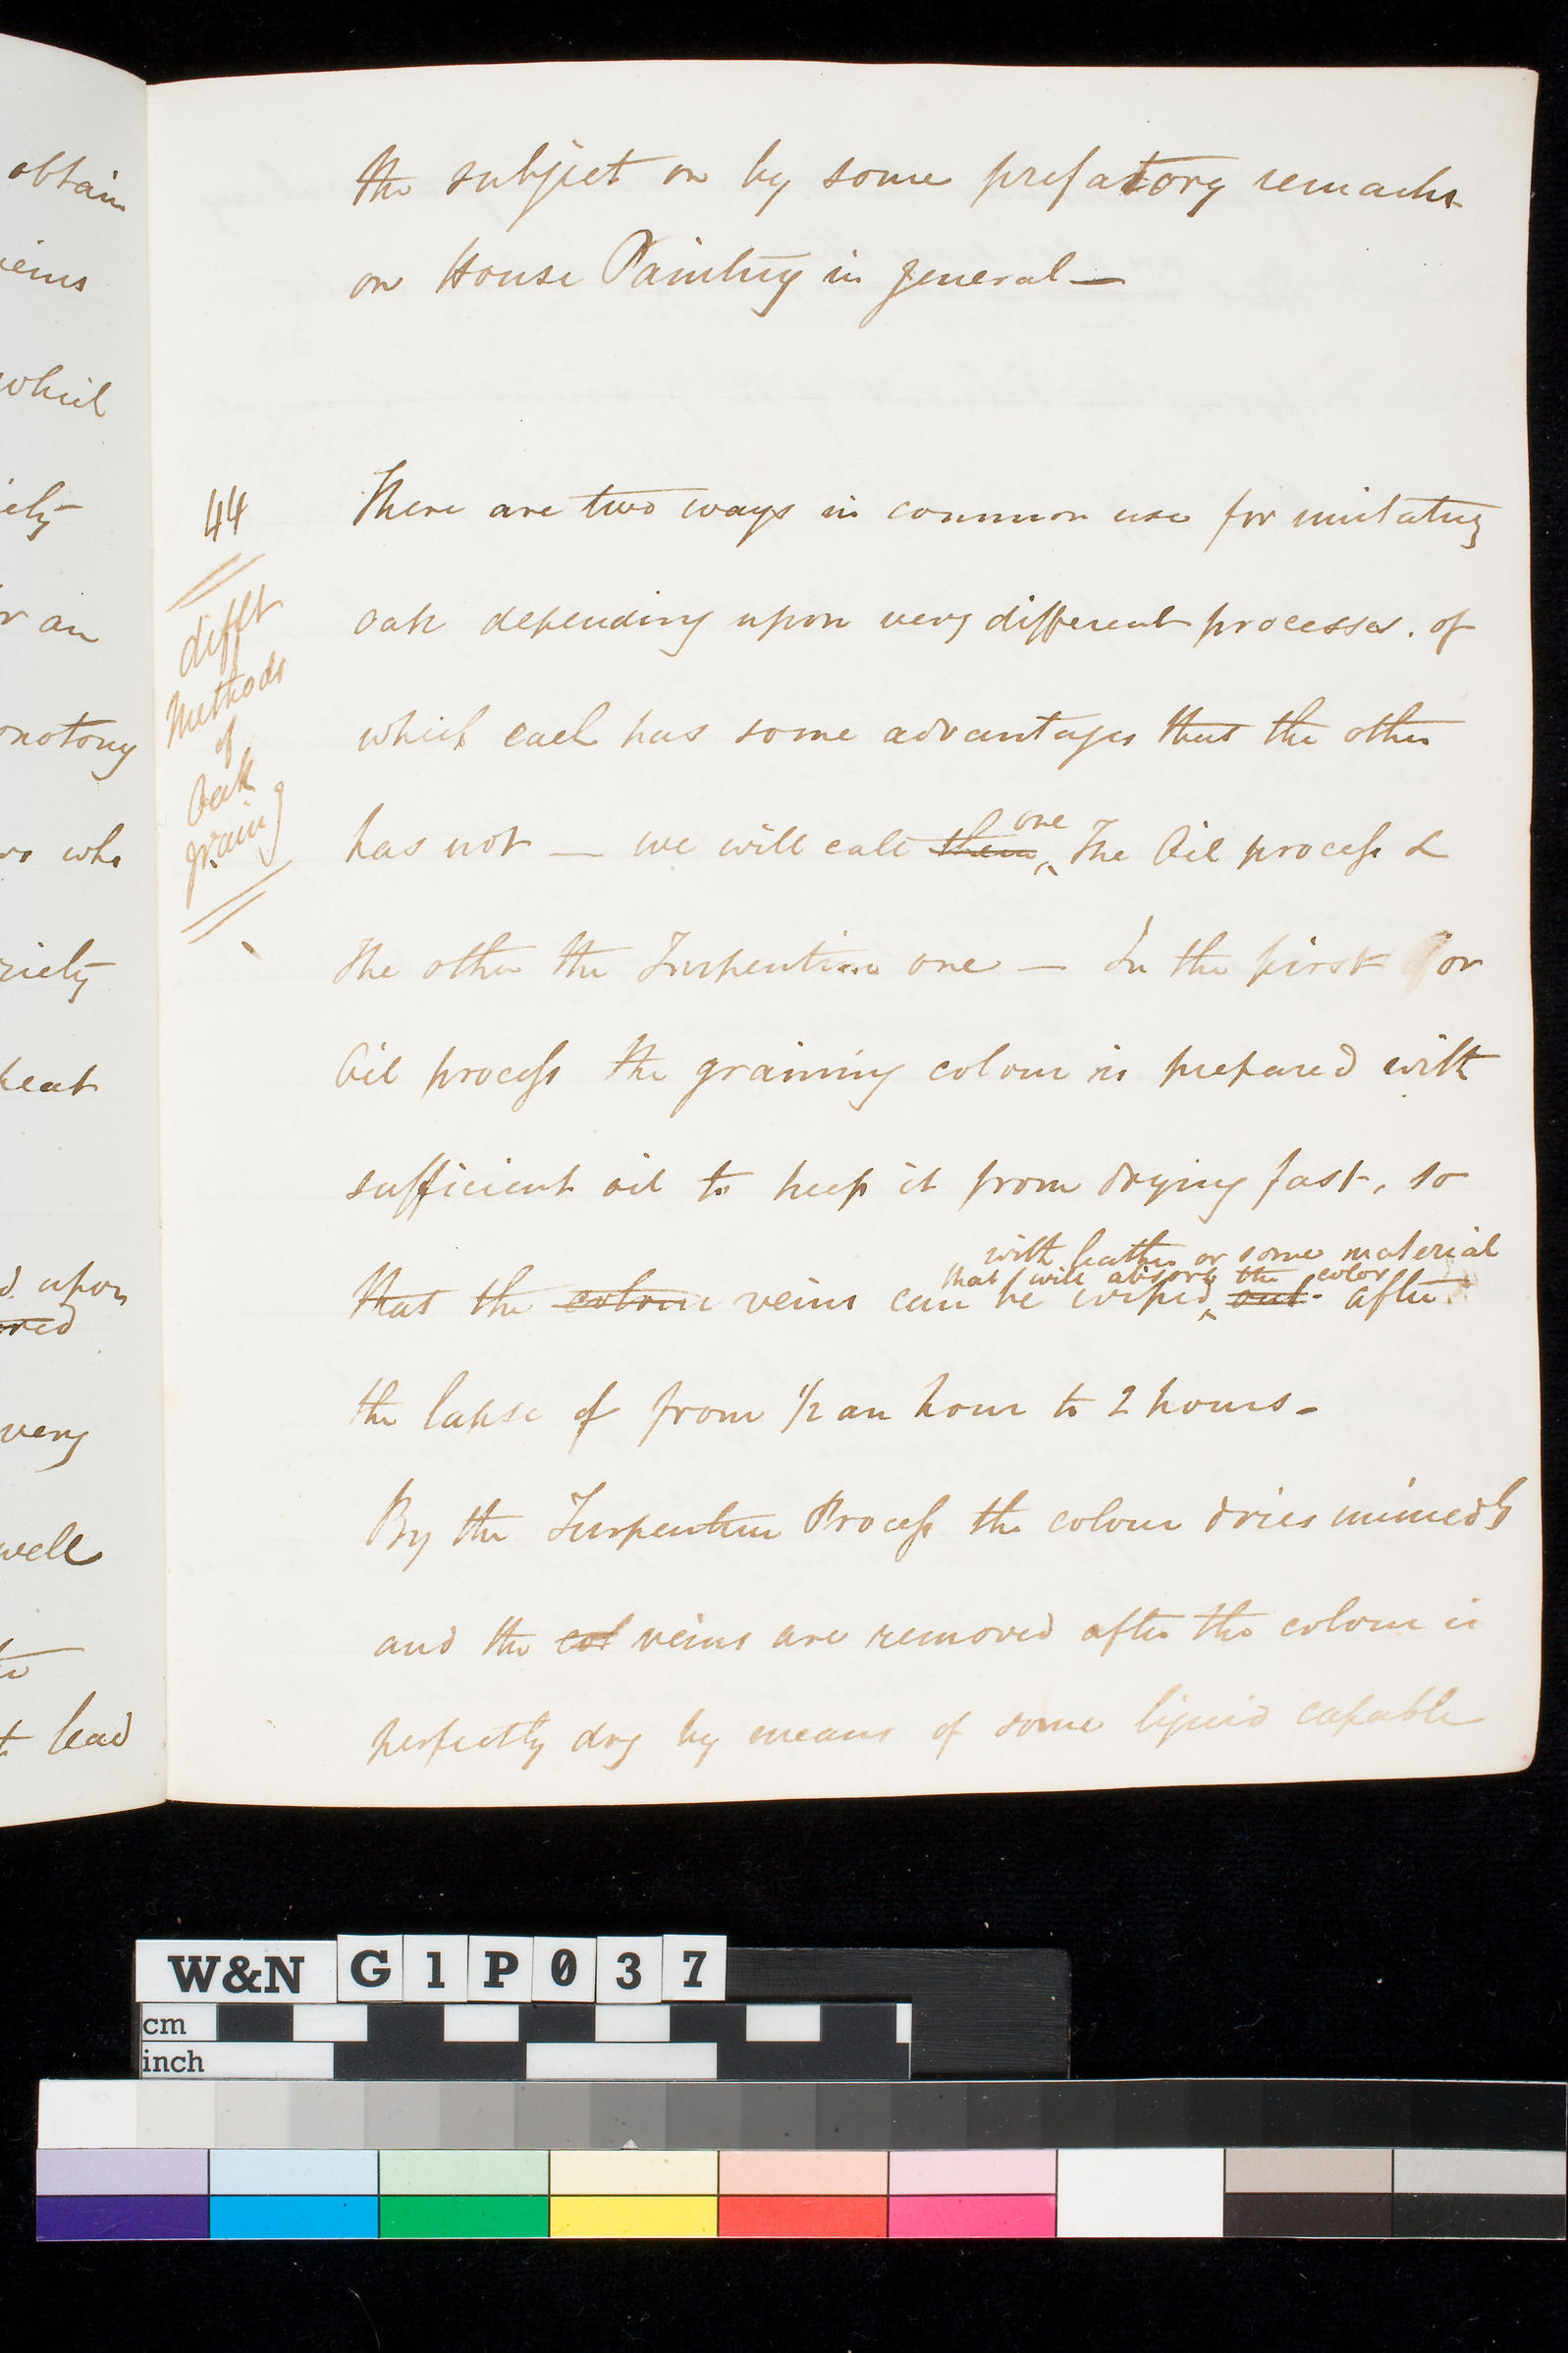 obtain
veins
which
iety
r an
onotony
rs who
riety
peat
d upon
ored
very
well
t lead
the subject on by some prefatory remarks
on House Painting in general —
44
difft
Methods
of
Oak
graining
There are two ways in common use for imitating
oak depending upon very different processes. of
which each has some advantages that the other
has not — we will call them one The Oil process &
The other the Turpentine one — In the first or
Oil process the graining colour is prepared with
sufficient oil to keep it from drying fast, so
with leather or some material
that will absorb the color
that the colour veins can be wiped out. after
the lapse of from 1/2 an hour to 2 hours -
By the Turpentine Process the colour dries immedy
and the col veins are removed after the colour is
perfectly dry by means of some liquid capable
W&N G1P037
cm
inch